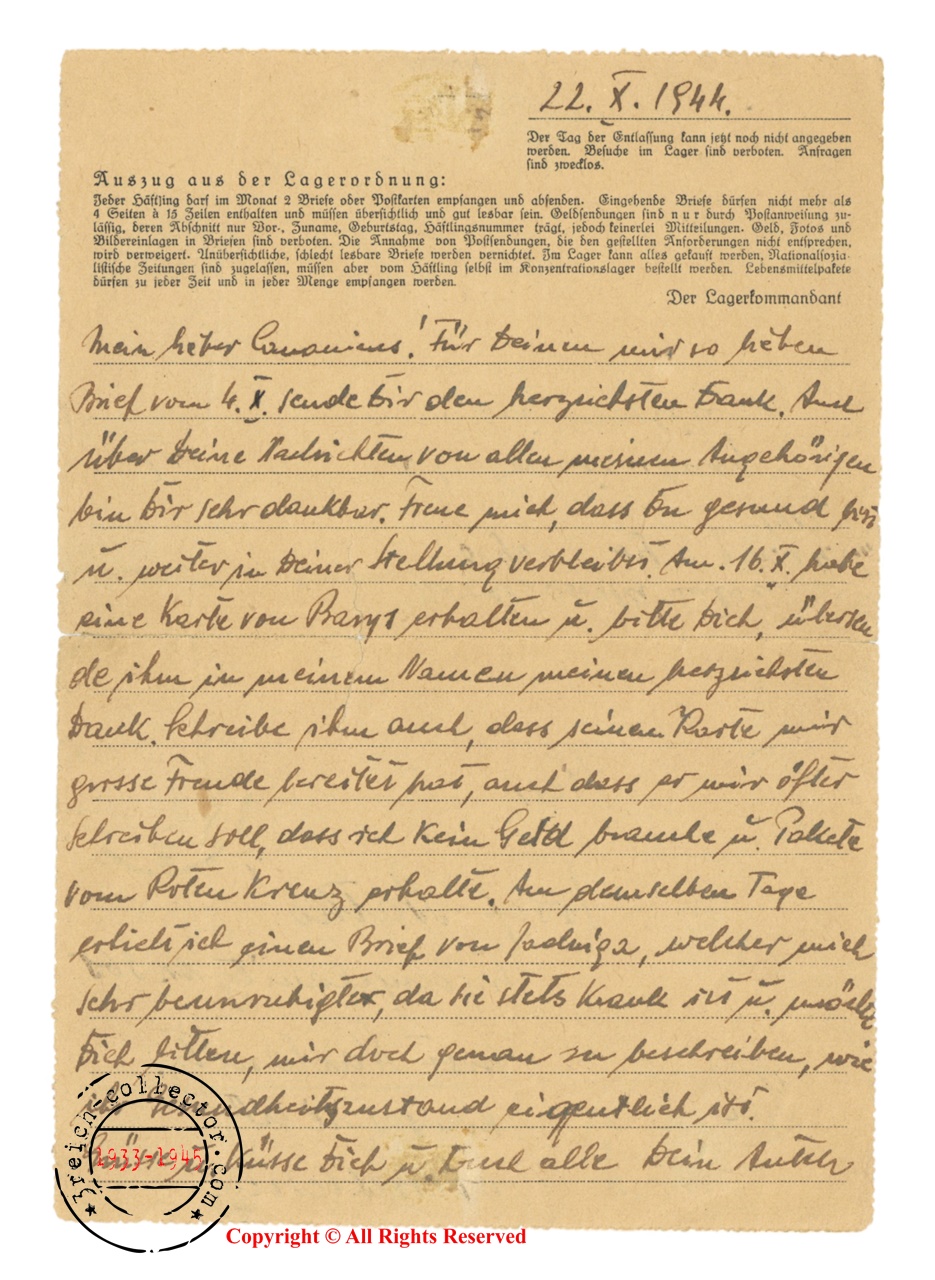 22. X. 1944.
Der Tag der Entlassung kann jetzt noch nicht angegeben
werden. Besuche im Lager sind verboten. Anfragen
sind zwecklos.
Auszug aus der Lagerordnung:
Jeder Häftling darf im Monat 2 Briefe oder Postkarten empfangen und absenden. Eingehende Briefe dürfen nicht mehr als
4 Seiten à 15 Zeilen enthalten und müssen übersichtlich und gut lesbar sein. Geldsendungen sind nur durch Postanweisung zu-
lässig, deren Abschnitt nur Vor-, Zuname, Geburtstag, Häftlingsnummer trägt, jedoch keinerlei Mitteilungen. Geld, Fotos und
Bildereinlagen in Briefen sind verboten. Die Annahme von Postsendungen, die den gestellten Anforderungen nicht entsprechen,
wird verweigert. Unübersichtliche, schlecht lesbare Briefe werden vernichtet. Im Lager kann alles gekauft werden, Nationalsozia-
listische Zeitungen sind zugelassen, müssen aber vom Häftling selbst im Konzentrationslager bestellt werden. Lebensmittelpakete
dürfen zu jeder Zeit und in jeder Menge empfangen werden.
Der Lagerkommandant
Mein lieber ! Für Deinen mir so lieben
Brief vom 4. X. sende Dir den herzlichsten Dank. Auch
über Deine Nachrichten von allen meinen Angehörigen
bin Dir sehr dankbar. Freue mich, dass Du gesund bist
u. weiter in Deiner Stellung verbleibst. Am 16. X. habe
eine Karte von erhalten u. bitte Dich, übersen
de ihm in meinem Namen meinen herzlichsten
Dank. Schreibe ihm auch, dass seinen Karte mir
grosse Freude bereitet hat, auch dass er mir öfter
schreiben soll, dass ich kein Geld brauche u. Pakete
vom Roten Kreuz erhalte. Am demselben Tage
erhielt ich einen Brief von Jadwiga, welcher mich
sehr beunruhigte, da sie stets krank ist u. möchte
Dich bitten, mir doch genau zu beschreiben, wie
ihr Gesundheitszustand eigentlich ist.
Grüsse u. küsse Dich u. Euch alle Dein
3reich-collector.com
1933-1945
Copyright © All Rights Reserved